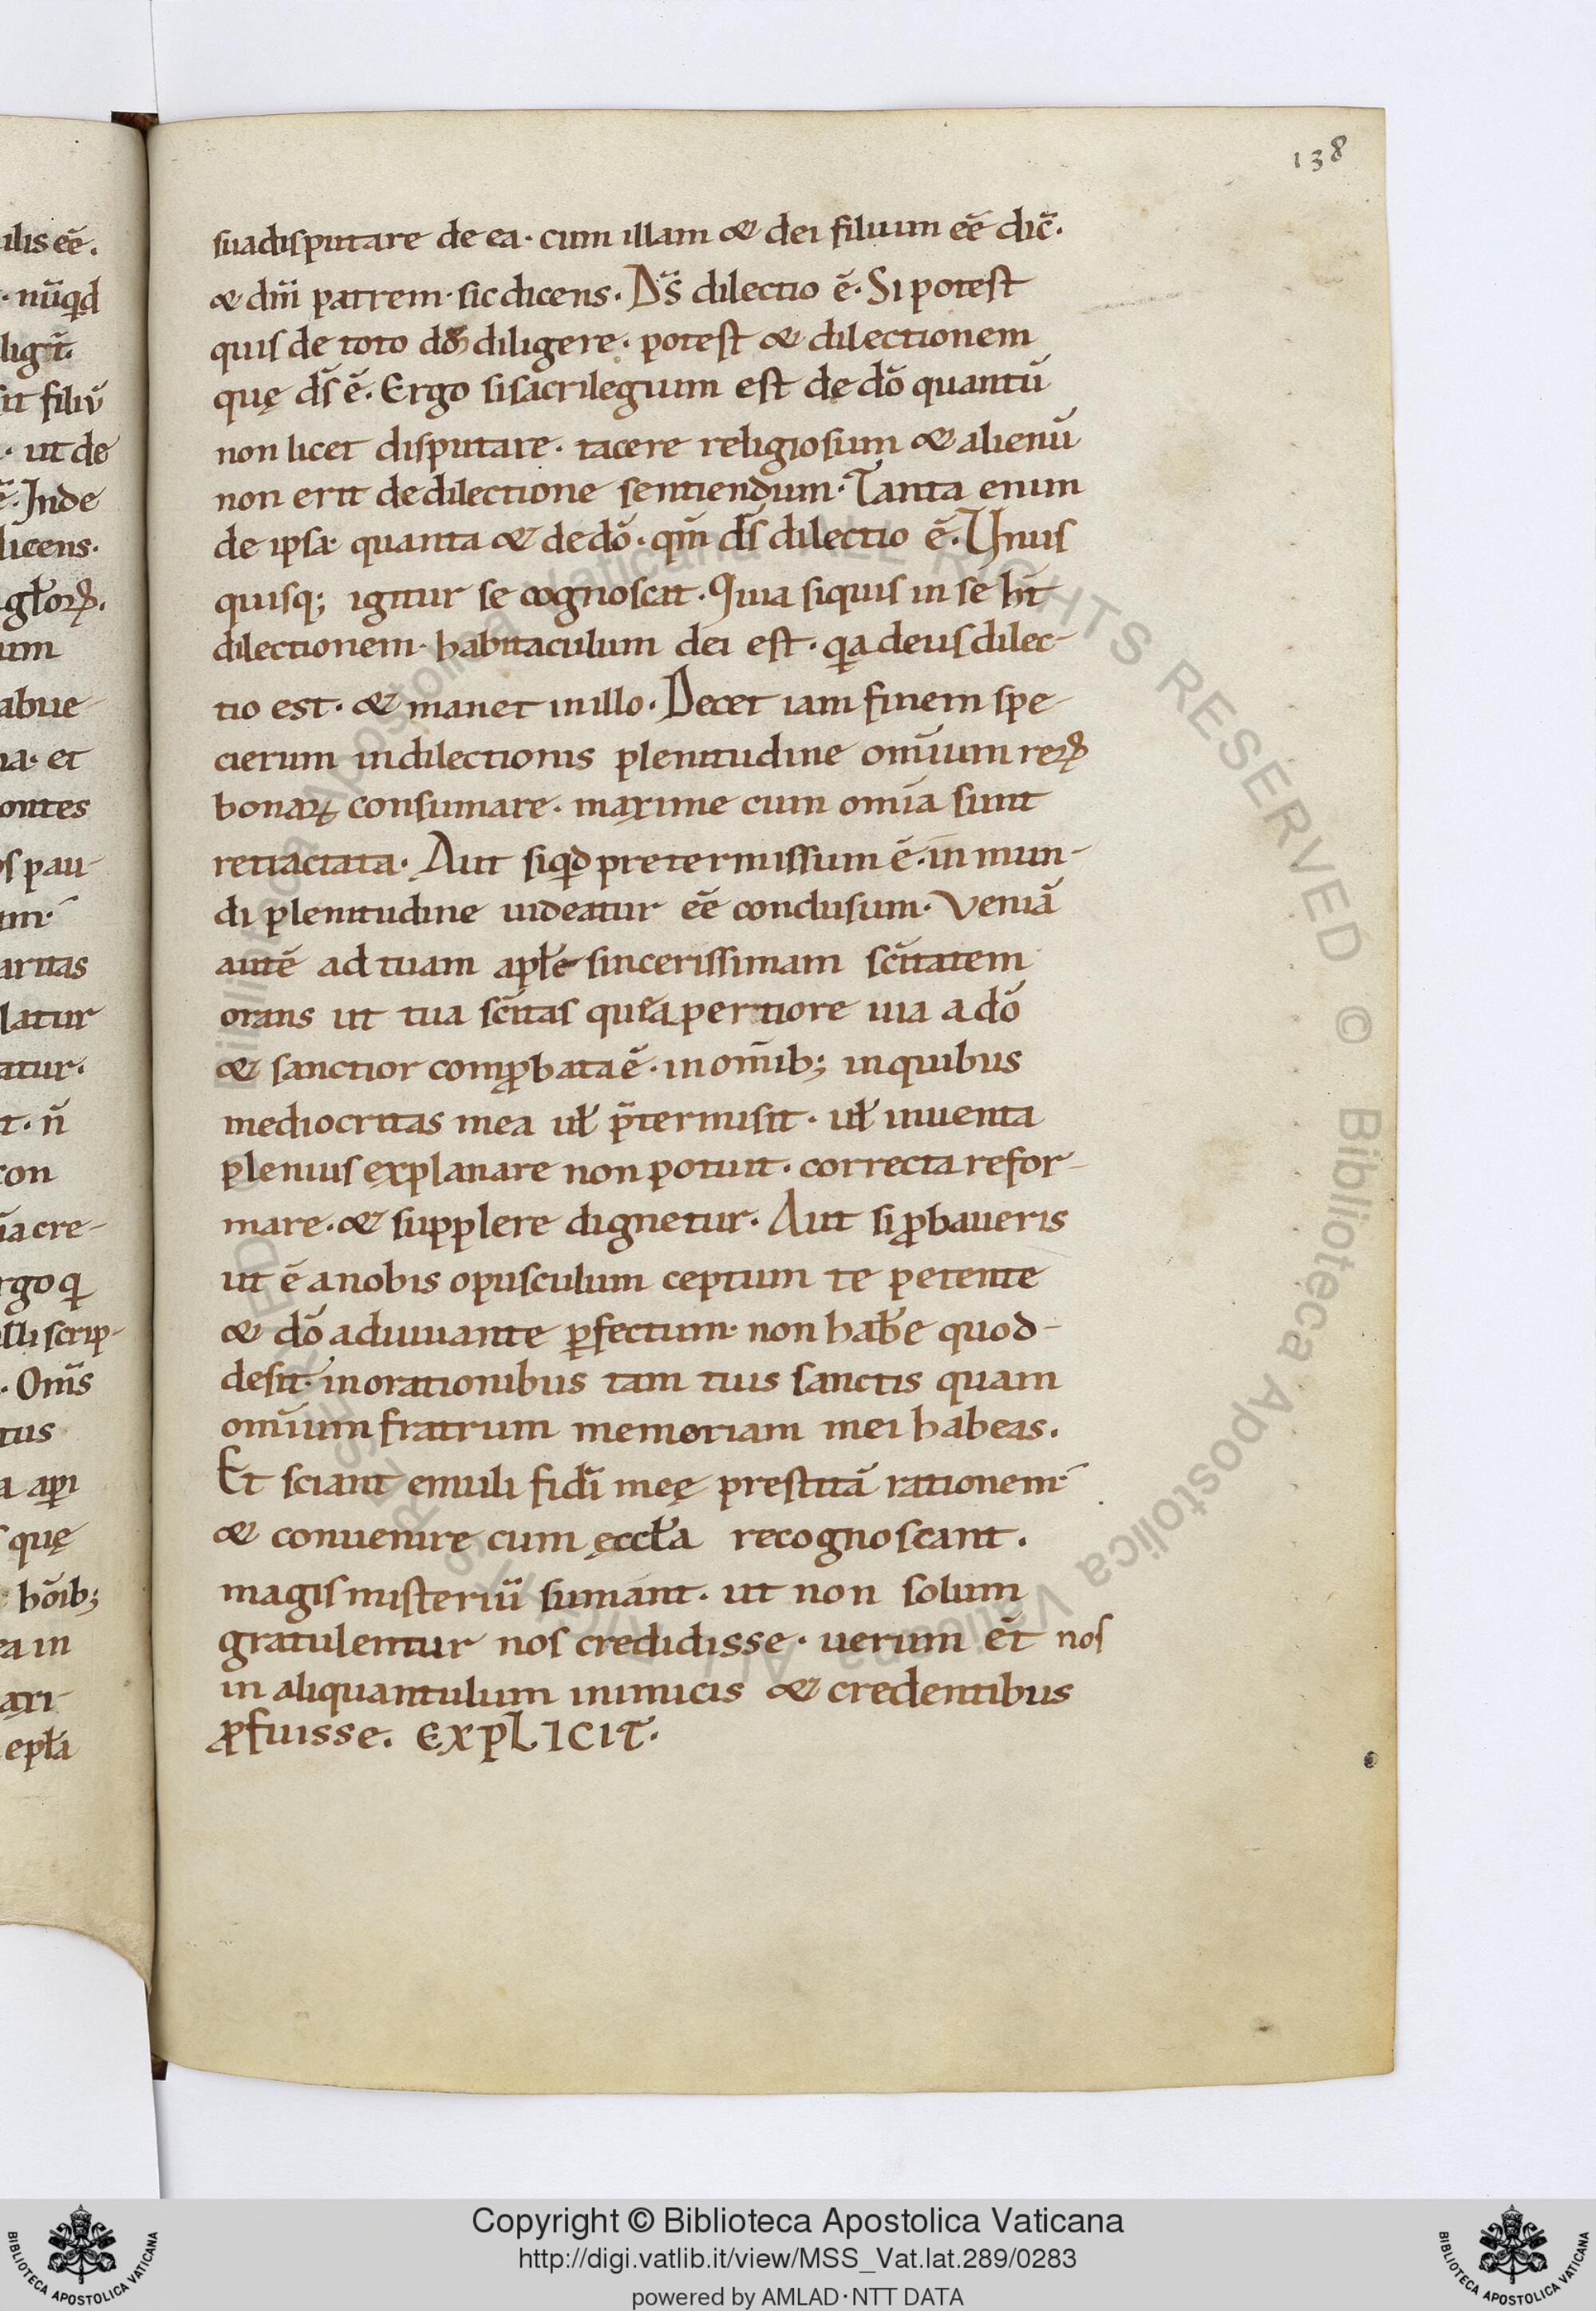 138
suadisputare de ea· cum illam & dei filium eē dic̄.
& dm̄ patrem· sic dicens. Ds̄ dilectio ē. Si potest
quis de toto do diligere· potest & dilectionem
quę ds̄ ē. Ergo si sacrilegium est dę dō quantū
non licet disputare· tacere religiosum & alienū
non erit de dilectione sentiendum. Tanta enim
de ipsa· quanta & de dō· qm̄ ds̄ dilectio ē. Unus
quisq; igitur se cognoscat. Quia siquis in se ht̄
dilectionem· habitaculum dei est· qa deus dilec-
tio est· & manet in illo. Decet iam finem spe-
cierum in dilectionis plenitudine om̄ium reꝝ
bonaꝝ consumare· maxime cum om̄ia sunt
retractata. Aut siqd pretermissum ē· in mun-
di plenitudine uideatur eē conclusum. Veniā
autē ad tuam aplē sincerissimam sc̄itatem
orans ut tua sc̄itas que apertiore uia a dō
& sanctior comꝓbata ē· in om̄ib; in quibus
mediocritas mea ul̄ p̄termisit· ul̄ inuenta
plenius explanare non potuit· correcta refor-
mare· & supplere dignetur. Aut si ꝓbaueris
ut ē a nobis opusculum ceptum te petente
& dō adiuuante ꝑfectum· non habe quod-
desit· in orationibus tam tuis sanctis quam
om̄ium fratrum memoriam mei habeas.
Et sciant emuli fidī meę prestitā rationem·
& conuenire cum ęccła recognoscant.
magis misteriū sumant· ut non solum
gratulentur nos credidisse· uerum et̄ nos
in aliquantulum inimicis & credentibus
ꝓfuisse. EXPLICIT.
Copyright © Biblioteca Apostolica Vaticana
http://digi.vatlib.it/view/MSS_Vat.lat.289/0283
powered by AMLAD·NTT DATA